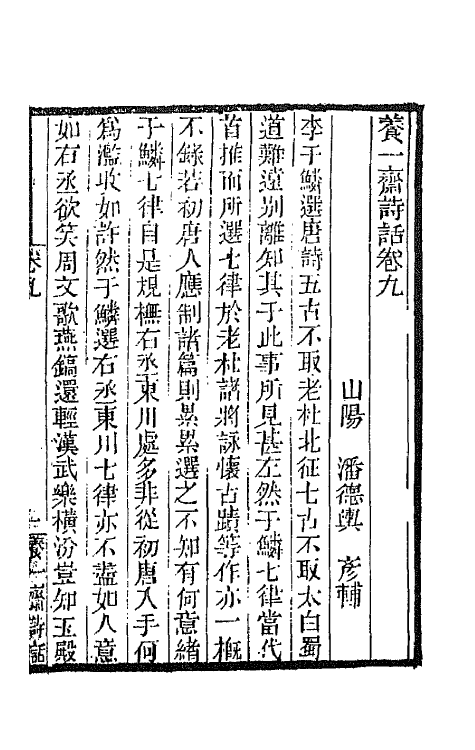 養一齋詩話卷九
山陽 潘德輿 彥輔
李于鱗選唐詩五古不取老杜北征七古不取太白蜀
道難遠別離知其于此事所見甚左然于鱗七律當代
首推而所選七律於老杜諸將詠懷古蹟等作亦一概
不錄若初唐人應制諸篇則累累選之不知有何意緖
于鱗七律自是規橅右丞東川處多非從初唐入手何
爲濫收如許然于鱗選右丞東川七律亦不盡如人意
如右丞欲笑周文歌燕鎬還輕漢武樂橫汾豈知玉殿
卷九
一
養一齋詩話